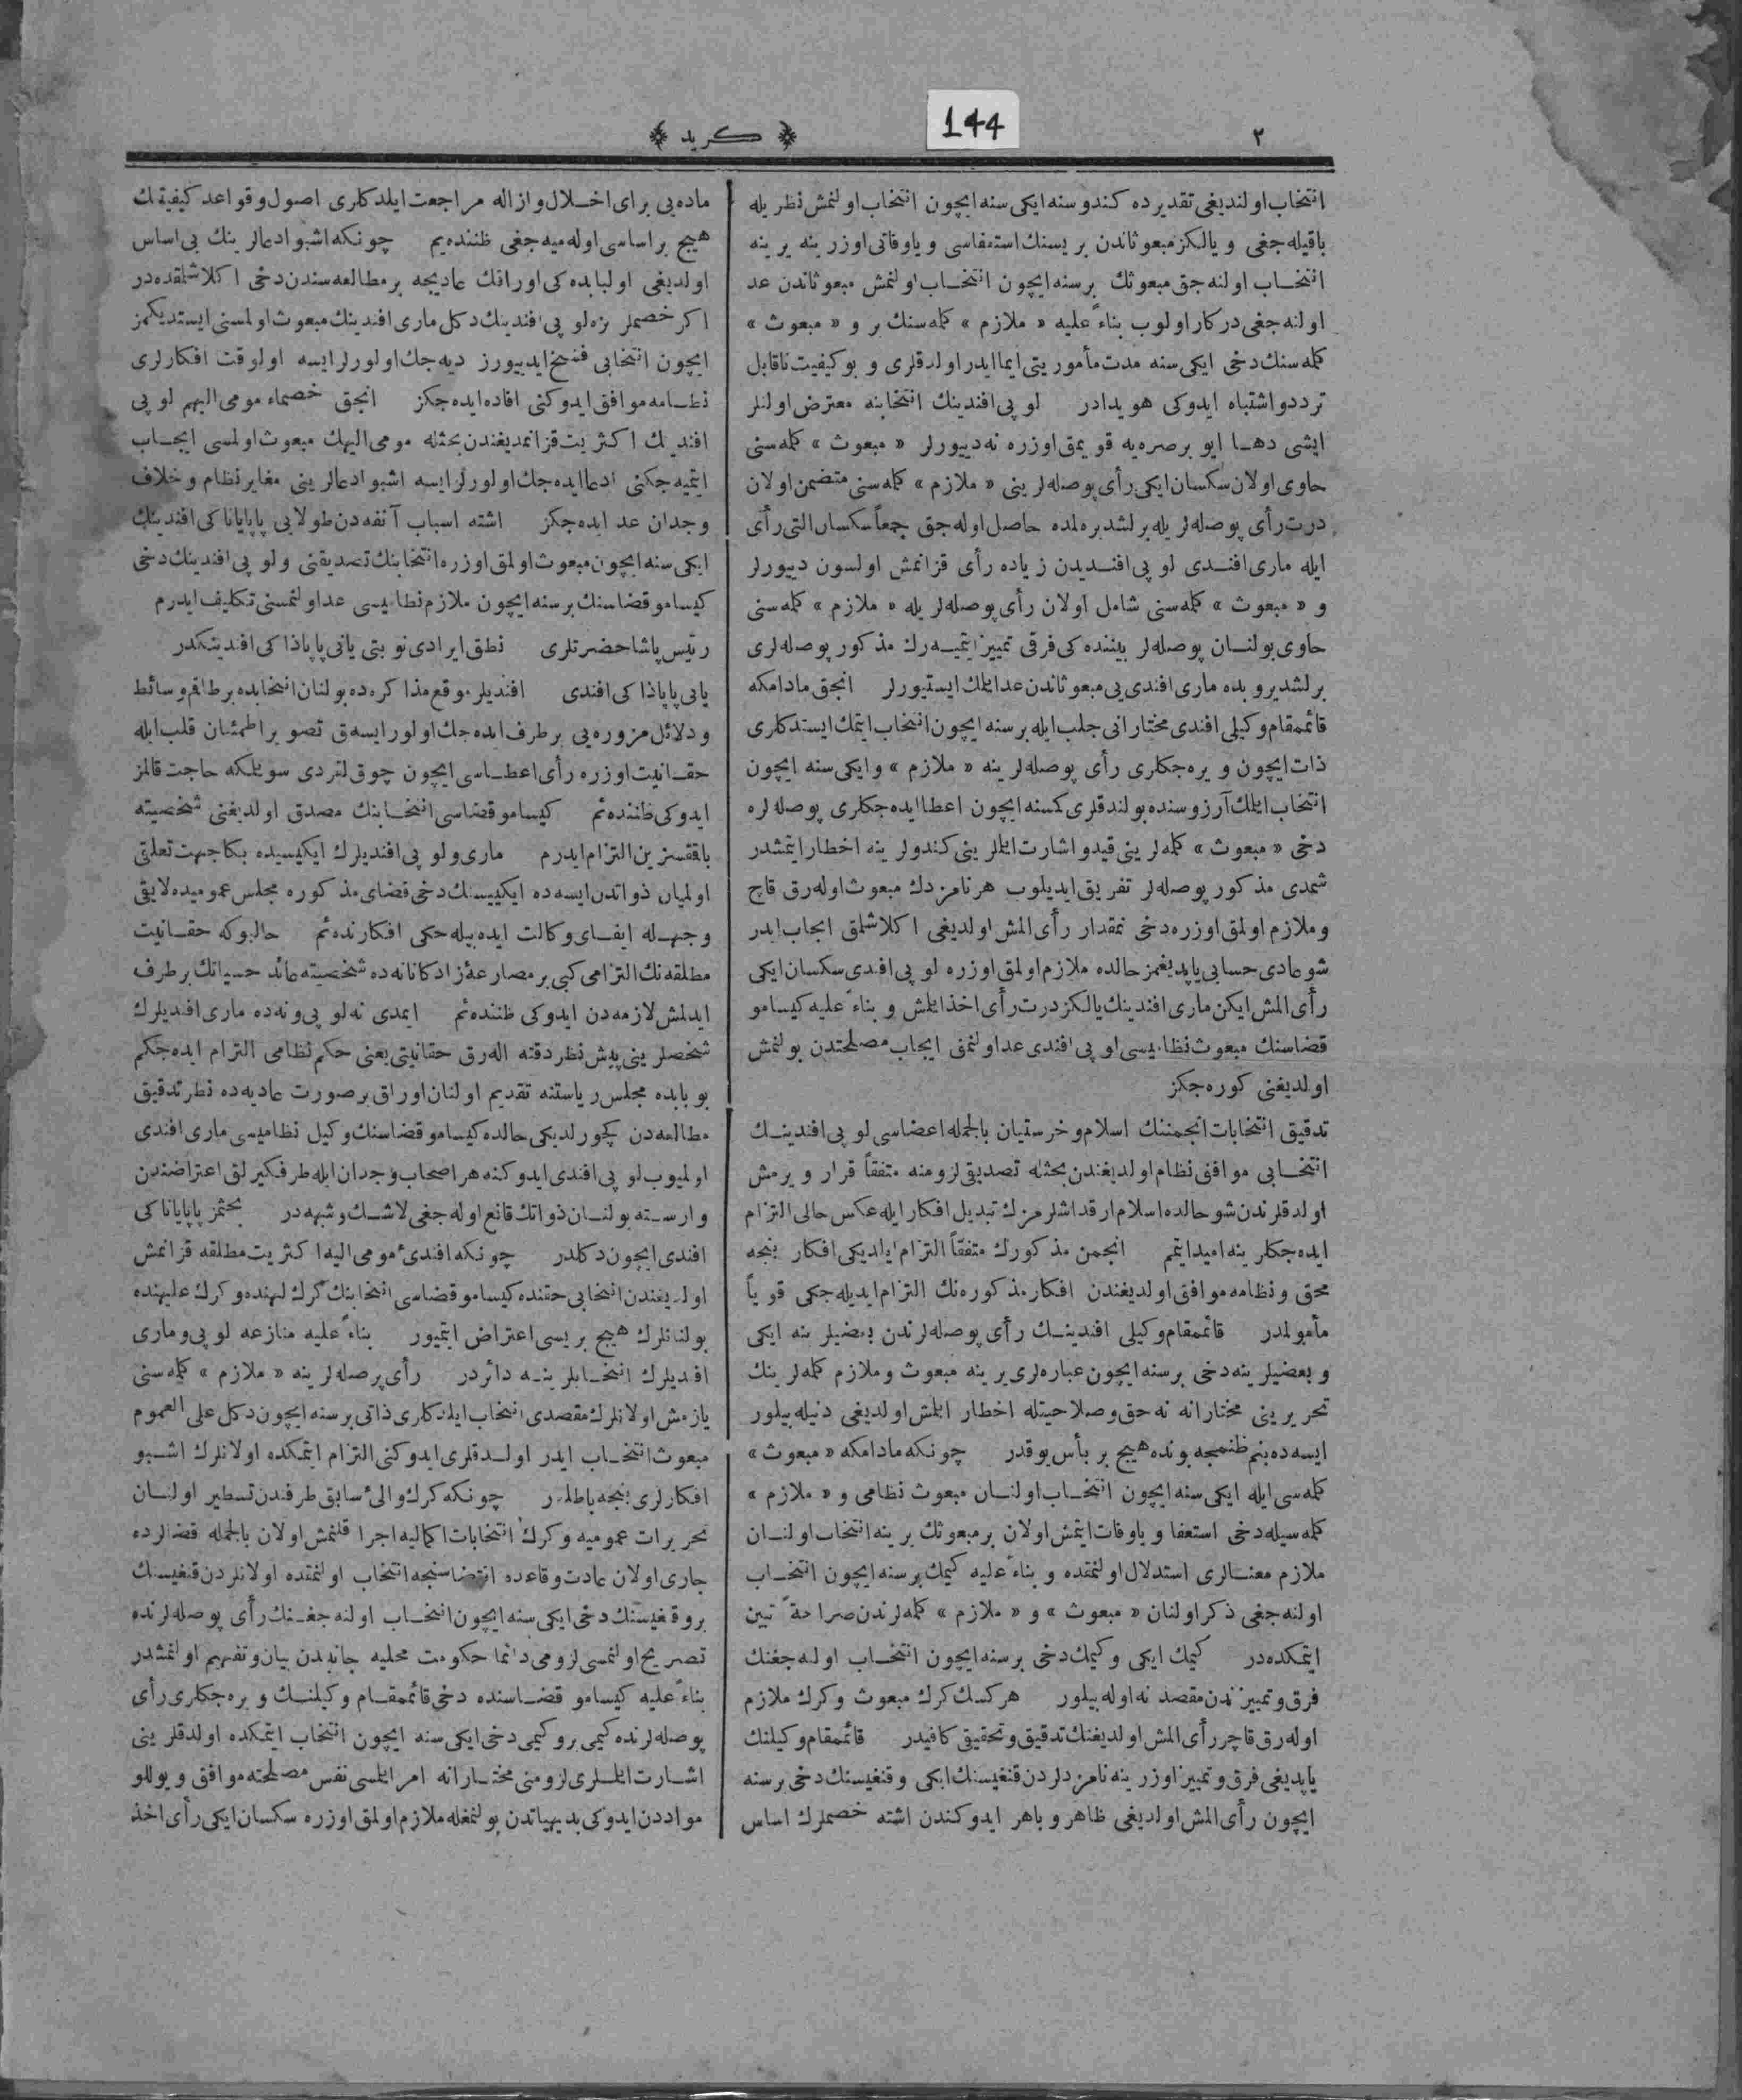 ٢
144
﴿ كريد ﴾
انتخاب اولنديغی تقديرده كندوسنه ايكی سنه ايچون انتخاب اولنمش نظريله
باقيله جغی و يالكز مبعوثاندن بريسنك استعفاسی و ياوفاتی اوزرينه يرينه
انتخاب اولنه جق مبعوثك برسنه ايچون انتخاب اولنمش مبعوثاندن عد
اولنه جغی دركار اولوب بناءً عليه « ملازم » كلمه سنك بر و « مبعوث »
كلمه سنك دخی ايكی سنه مدت مأموريتی ايما ايدر اولدقلری و بوكيفيت ناقابل
ترددواشتباه ايدوكی هويدادر لو پی افندينك انتخابنه معترض اولنلر
ايشی دها ايو برصره يه قويمق اوزره نه دييورلر « مبعوث » كلمه سنی
حاوی اولان سكسان ايكی رأی پوصله لرينی « ملازم » كلمه سنی متضمن اولان
درت رأی پوصله لريله برلشديره لمده حاصل اوله جق جمعاً سكسان التی رأی
ايله ماری افندی لو پی افنديدن زياده رأی قزانمش اولسون دييورلر
و « مبعوث » كلمه سنی شامل اولان رأی پوصله لريله « ملازم » كلمه سنی
حاوی بولنان پوصله لر بيننده كی فرقی تمييز ايتميه رك مذكور پوصله لری
برلشديروبده ماری افندی يی مبعوثاندن عد ايلمك ايستيورلر انجق مادامكه
قائممقام وكيلی افندی مختارانی جلب ايله برسنه ايچون انتخاب ايتمك ايستدكلری
ذات ايچون ويره جكلری رأی پوصله لرينه « ملازم » وايكی سنه ايچون
انتخاب ايلمك آرزوسنده بولندقلری كمسنه ايچون اعطا ايده جكلری پوصله لره
دخی « مبعوث » كلمه لرينی قيدو اشارت ايتلرينی كندولرينه اخطار ايتمشدر
شمدی مذكور پوصله لر تفريق ايديلوب هرنامزدك مبعوث اوله رق قاچ
وملازم اولمق اوزره دخی نمقدار رأی المش اولديغی اكلاشلمق ايجاب ايدر
شو عادی حسابی ياپديغمز حالده ملازم اولمق اوزره لو پی افندی سكسان ايكی
رأی المش ايكن ماری افندينك يالكز درت رأی اخذ ايلمش و بناءً عليه كيسامو
قضاسنك مبعوث نظاميسی لو پی افندی عداولنمق ايجاب مصلحتدن بولنمش
اولديغنی كوره جكز
تدقيق انتخابات انجمننك اسلام وخرستيان بالجمله اعضاسی لو پی افندينك
انتخابی موافق نظام اولديغندن بحثله تصديقی لزومنه متفقاً قرار ويرمش
اولدقلرندن شو حالده اسلام ارقداشلرمزك تبديل افكار ايله عكس حالی التزام
ايده جكلرينه اميد ايتمم انجمن مذكورك متفقاً التزام ايلديكی افكار بنجه
محق ونظامه موافق اولديغندن افكار مذكوره نك التزام ايديله جكی قوياً
مأمولمدر قائممقام وكيلی افندينك رأی پوصله لرندن بعضيلرينه ايكی
و بعضيلرينه دخی برسنه ايچون عباره لری يرينه مبعوث وملازم كلمه لرينك
تحريرينی مختارانه نه حق وصلاحيتله اخطار ايلمش اولديغی دنيله بيلور
ايسه ده بنم ظنمجه بونده هيچ بر بأس يوقدر چونكه مادامكه « مبعوث »
كلمه سی ايله ايكی سنه ايچون انتخاب اولنان مبعوث نظامی و « ملازم »
كلمه سيله دخی استعفا و ياوفات ايتمش اولان برمبعوثك يرينه انتخاب اولنان
ملازم معنالری استدلال اولنمقده و بناءً عليه كيمك برسنه ايچون انتخاب
اولنه جغی ذكر اولنان « مبعوث » و « ملازم » كلمه لرندن صراحةً تبين
ايتمكده در كيمك ايكی وكيمك دخی برسنه ايچون انتخاب اوله جغنك
فرق وتمييزندن مقصد نه اوله بيلور هركسك كرك مبعوث وكرك ملازم
اوله رق قاچر رأی المش اولديغنك تدقيق وتحقيقی كافيدر قائممقام وكيلنك
ياپديغی فرق وتمييز اوزرينه نامزدلردن قنغيسنك ايكی وقنغيسنك دخی برسنه
ايچون رأی المش اولديغی ظاهر و باهر ايدوكندن اشته خصملرك اساس
ماده يی برای اخلال وازاله مراجعت ايلدكلری اصول وقواعد كيفيتك
هيچ براساسی اوله ميه جغی ظننده يم چونكه اشبو ادعالرينك بی اساس
اولديغی اولبابده كی اوراقك عاديجه برمطالعه سندن دخی اكلاشلقده در
اكر خصملر بزه لو پی افندينك دكل ماری افندينك مبعوث اولمسنی ايستديكمز
ايچون انتخابی فسخ ايدييورز ديه جك اولورلرايسه اولوقت افكارلری
نظامه موافق ايدوكنی افاده ايده جكز انجق خصماء مومی اليهم لو پی
افندينك اكثريت قزانمديغندن بحثله مومی اليهك مبعوث اولمسی ايجاب
ايتميه جكنی ادعا ايده جك اولورلرايسه اشبو ادعالرينی مغاير نظام وخلاف
وجدان عد ايده جكز اشته اسباب آنفه دن طولايی پاپاياناكی افندينك
ايكی سنه ايچون مبعوث اولمق اوزره انتخابنك تصديقنی ولو پی افندينك دخی
كيسامو قضاسنك برسنه ايچون ملازم نظاميسی عداولنمسنی تكليف ايدرم
رئيس پاشا حضرتلری نطق ايرادی نوبتی يانی پاپاداكی افندينكدر
يانی پاپاداكی افندی افنديلر موقع مذاكره ده بولنان انتخابده برطاقم وسائط
ودلائل مزوره يی برطرف ايده جك اولورايسه ق تصوير اطمئنان قلب ايله
حقانيت اوزره رأی اعطاسی ايچون چوق لقردی سويلمكه حاجت قالمز
ايدوكی ظننده ئم كيسامو قضاسی انتخابنك مصدق اولديغنی شخصيته
باققسزين التزام ايدرم ماری ولو پی افنديلرك ايكيسيده بكاجهت تعلقی
اولميان ذواتدن ايسه ده ايكيسنك دخی قضای مذكوره مجلس عموميده لايقی
وجهله ايفای وكالت ايده بيله جكی افكارنده ئم حالبوكه حقانيت
مطلقه نك التزامی كبی برمصارعۀ آزادكانانه ده شخصيته عائد حسياتك برطرف
ايدلمش لازمه دن ايدوكی ظننده ئم ايمدی نه لو پی ونه ده ماری افنديلرك
شخصلرينی پيش نظر دقته اله رق حقانيتی يعنی حكم نظامی التزام ايده جكم
بو بابده مجلس رياستنه تقديم اولنان اوراق برصورت عاديه ده نظر تدقيق
مطالعه دن كچورلديكی حالده كيسامو قضاسنك وكيل نظاميسی ماری افندی
اولميوب لو پی افندی ايدوكنه هر اصحاب وجدان ايله طرفكيرلق اعتراضندن
وارسته بولنان ذواتك قانع اوله جغی لاشك وشبهه در بحثمز پاپاياناكی
افندی ايچون دكلدر چونكه افندیٔ مومی اليه اكثريت مطلقه قزانمش
اولديغندن انتخابی حقنده كيسامو قضاسی انتخابنك كرك لهنده وكرك عليهنده
بولنانلرك هيچ بريسی اعتراض ايتميور بناءً عليه منازعه لو پی وماری
افنديلرك انتخابلرينه دائردر رأی پوصله لرينه « ملازم » كلمه سنی
يازمش اولانلرك مقصدی انتخاب ايلدكلری ذاتی برسنه ايچون دكل علی العموم
مبعوث انتخاب ايدر اولدقلری ايدوكنی التزام ايتمكده اولانلرك اشبو
افكارلری بنجه باطلدر چونكه كرك والیٔ سابق طرفندن تسطير اولنان
تحريرات عموميه وكرك انتخابات اكماليه اجرا قلنمش اولان بالجمله قضالرده
جاری اولان عادت وقاعده اقتضاسنجه انتخاب اولنمقده اولانلردن قنغيسنك
بر وقنغيسنك دخی ايكی سنه ايچون انتخاب اولنه جغنك رأی پوصله لرنده
تصريح اولنمسی لزومی دائما حكومت محليه جانبندن بيان وتفهيم اولنمشدر
بناءً عليه كيسامو قضاسنده دخی قائممقام وكيلنك ويره جكلری رأی
پوصله لرنده كيمی بر وكيمی دخی ايكی سنه ايچون انتخاب ايتمكده اولدقلرينی
اشارت ايتلری لزومنی مختارانه امر ايلمسی نفس مصلحته موافق و يوللو
موادندن ايدوكی بديهياتدن بولنمغله ملازم اولمق اوزره سكسان ايكی رأی اخذ